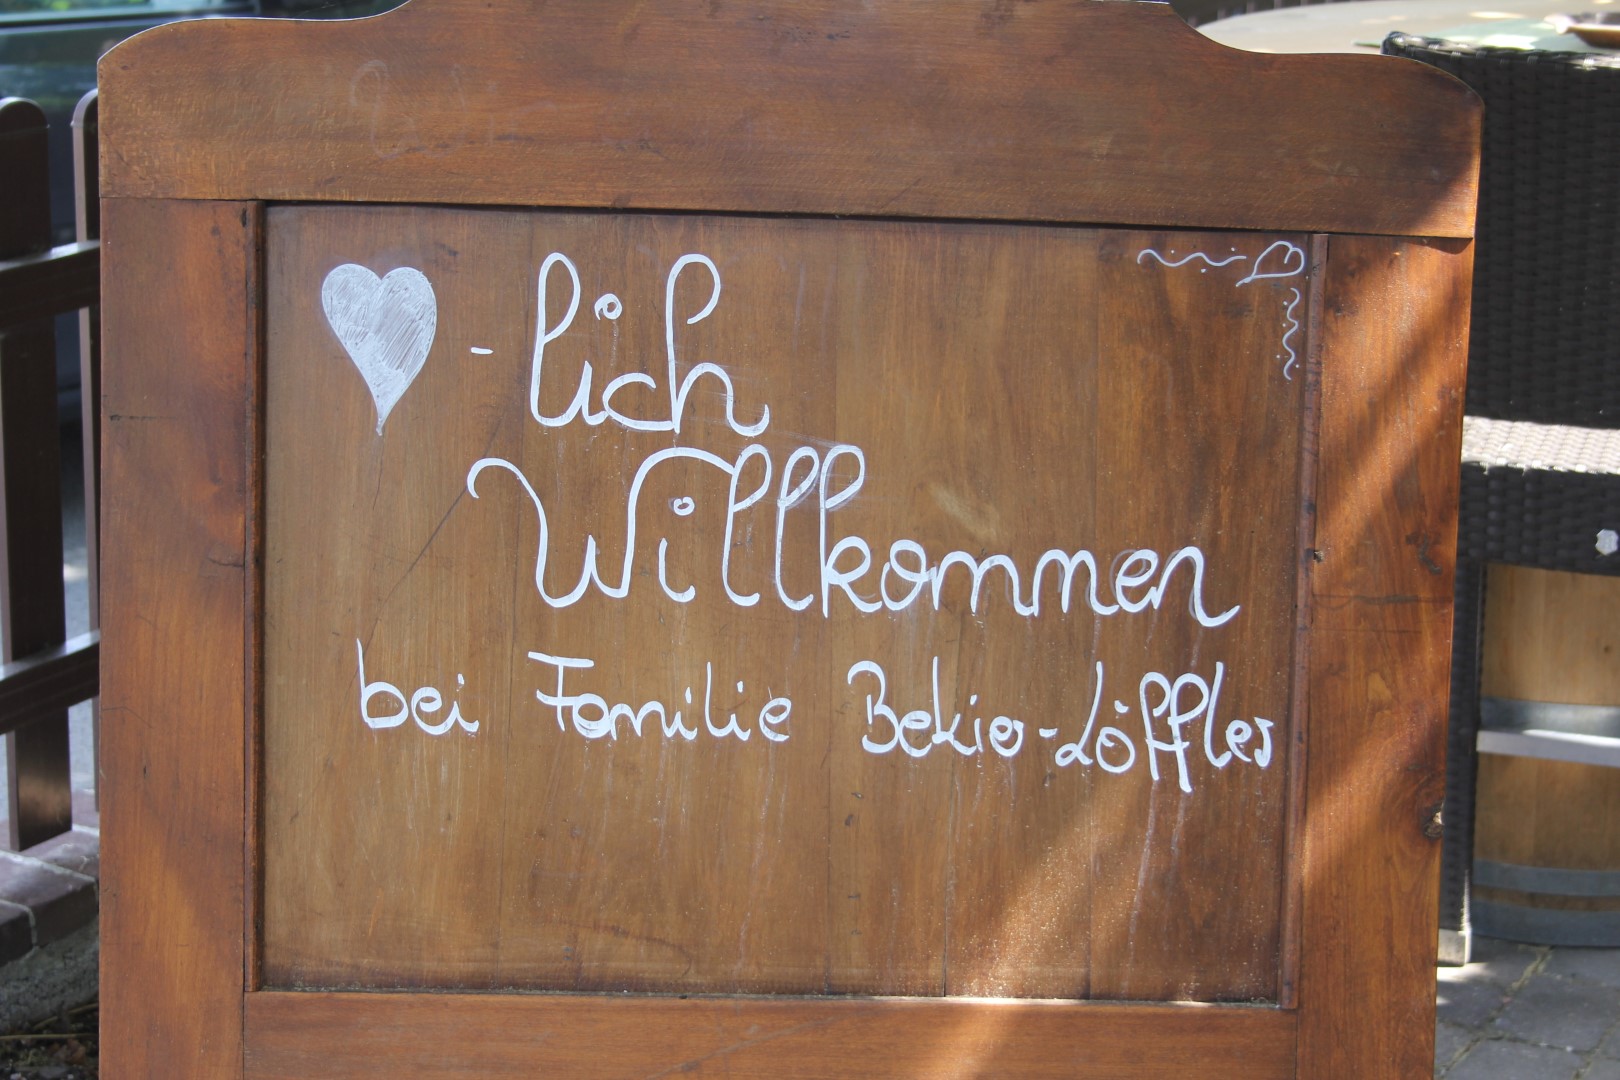 ♥-lich
Willkommen
bei Familie Bekio-Löffler